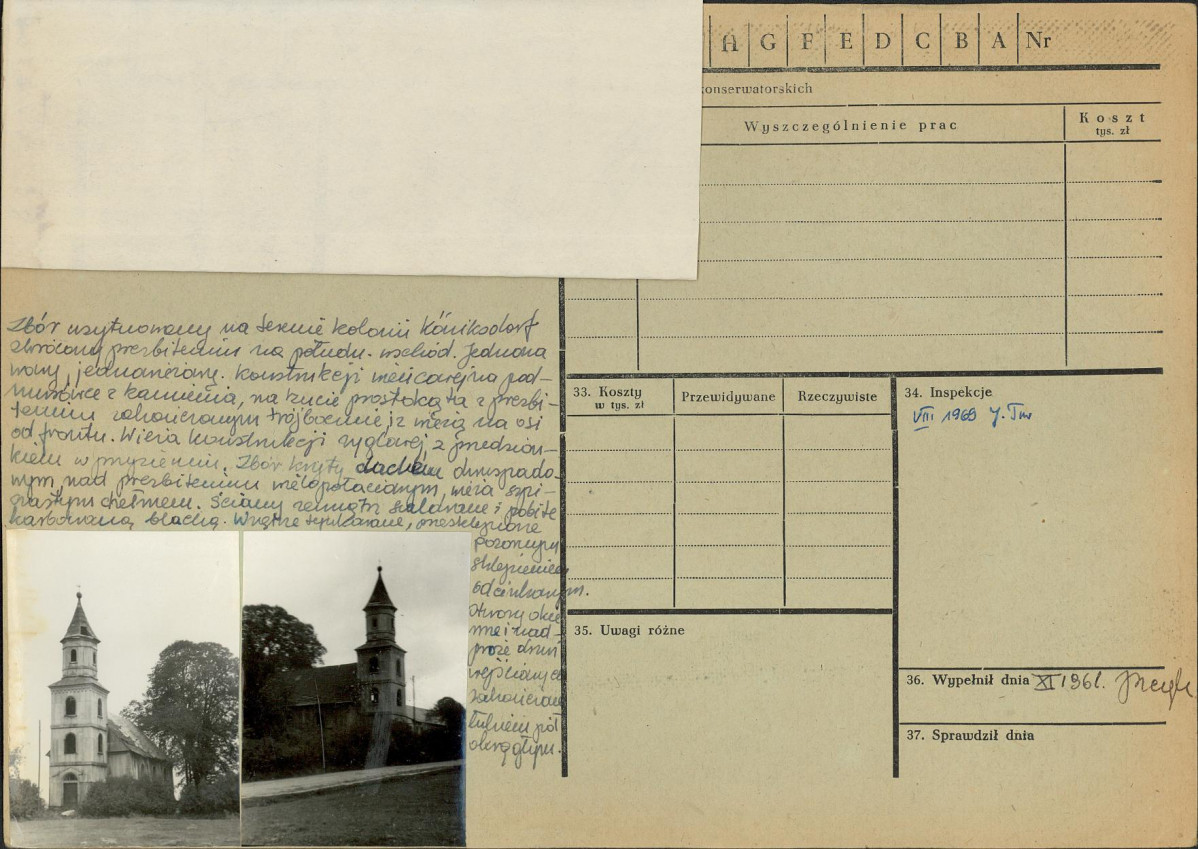 H G F E D C B A Nr
konserwatorskich
Wyszczególnienie prac
Koszt
tys. zł
Zbór usytuowany na terenie kolonii Köniksdorf
zwrócony prezbiterium na połudn.-wschód. Jednona
wowy, jednowieżowy. Konstrukcji mieszanej na pod-
murówce z kamienia, na rzucie prostokąta z prezbi-
terium zakończonym trójbocznie, z wieżą na osi
od frontu. Wieża konstrukcji ryglowej, z przedsion-
kiem w przyziemiu. Zbór kryty dachem dwuspado-
wym, nad prezbiterium wielopołaciowym, wieża szpi-
czastym chełmem. Ściany zewnątrz szalowane i pobite
karbowaną blachą. Wnętrze tynkowane, przesklepione
pozornym
sklepieniem
odcinkowym.
Otwory okie
nne i nad-
proże drzwi
wejściowych
zakończone
łukiem pół
okrągłym.
33. Koszty
w tys. zł
Przewidywane
Rzeczywiste
34. Inspekcje
VIII 1969
35. Uwagi różne
36. Wypełnił dnia XI 1961.
37. Sprawdził dnia